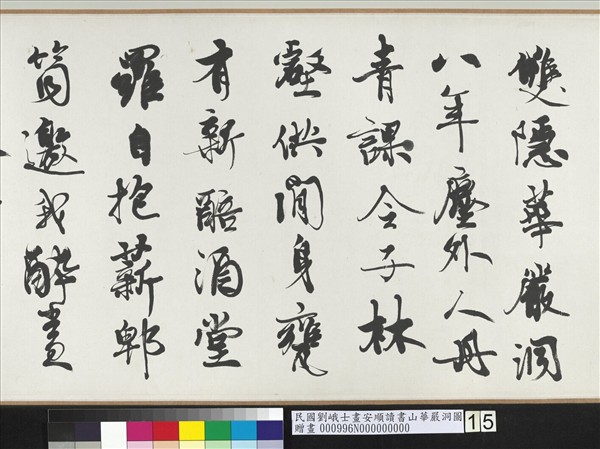 雙隱華嚴洞
八年塵外人丹
青課令子林
壑供閒身甕
有新醅酒堂
羅自抱薪郫
筒邀我醉畫
民國劉峨士畫安順讀書山華嚴洞圖
贈畫 000996N000000000
15